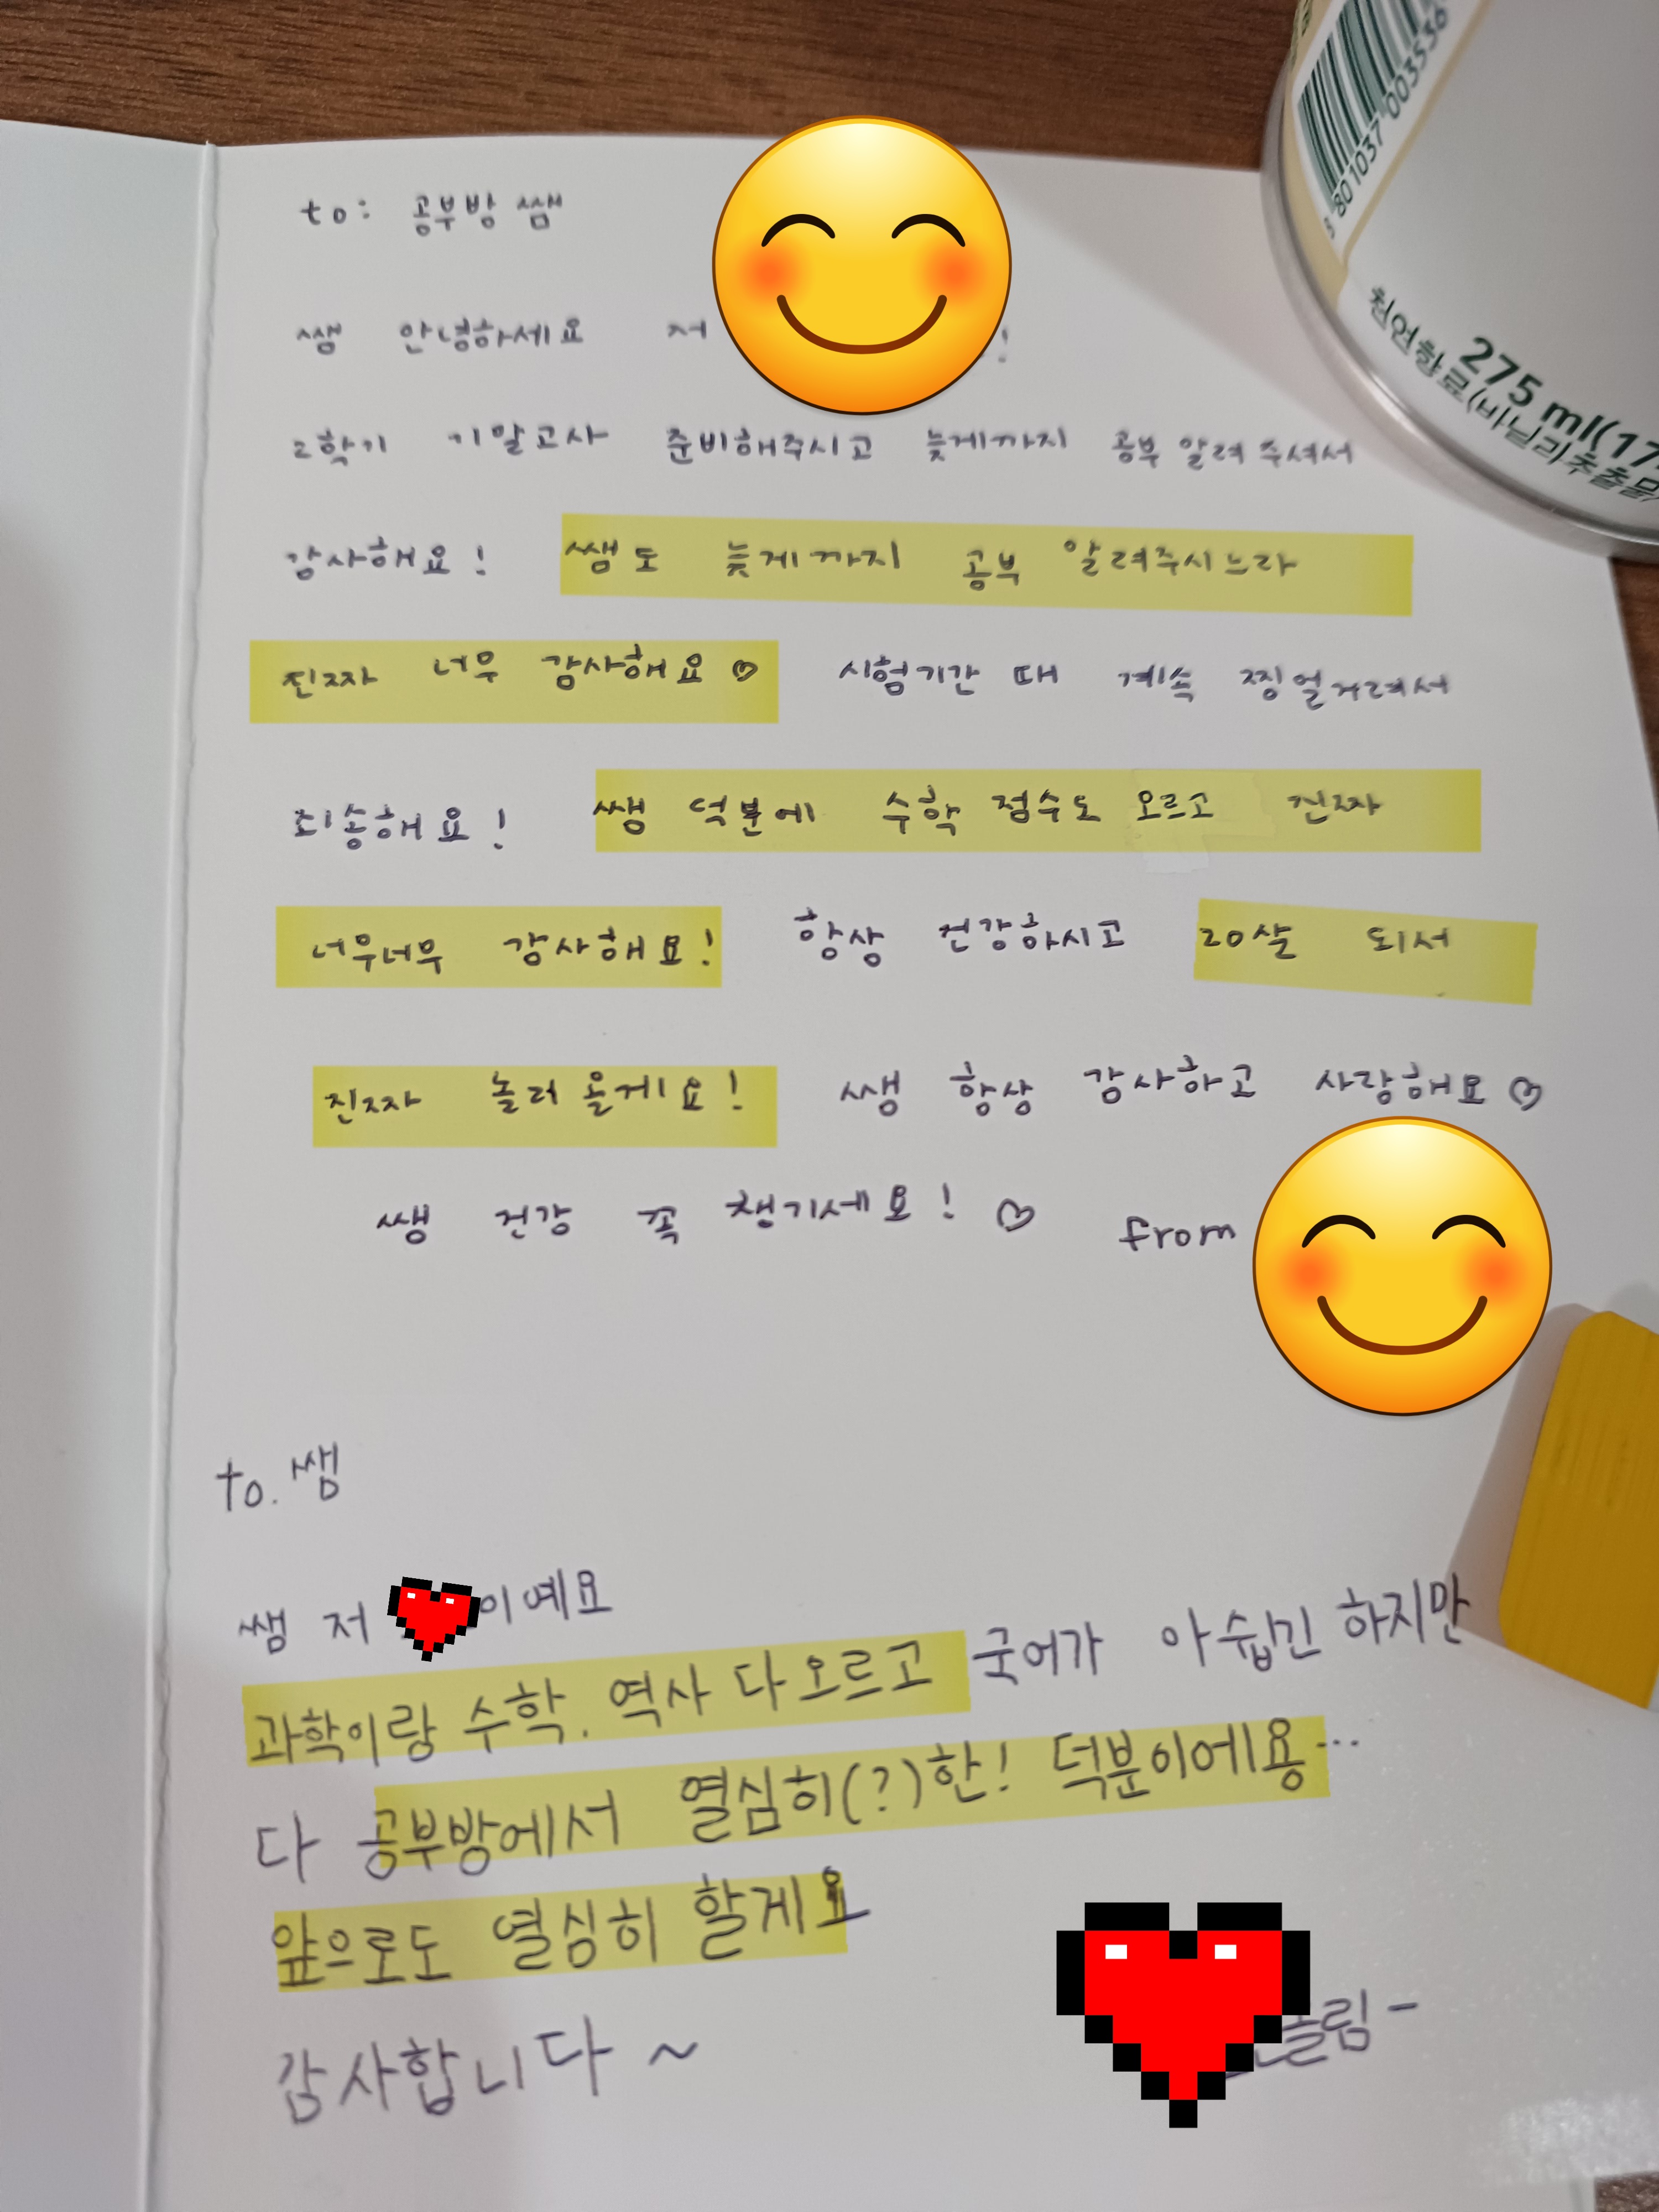 to: 공부방 쌤
쌤 안녕하세요 저 !
2학기 기말고사 준비해주시고 늦게까지 공부 알려주셔서
감사해요! 쌤도 늦게까지 공부 알려주시느라
진짜 너무 감사해요♡ 시험기간 때 계속 찡얼거려서
죄송해요! 쌤 덕분에 수학 점수도 오르고 진짜
너무너무 감사해요! 항상 건강하시고 20살 되서
진짜 놀러 올게요! 쌤 항상 감사하고 사랑해요♡
쌤 건강 꼭 챙기세요! ♡ from
to. 쌤
쌤 저 이예요
과학이랑 수학, 역사 다 오르고 국어가 아쉽긴 하지만
다 공부방에서 열심히(?)한! 덕분이에용…
앞으로도 열심히 할게요
감사합니다~
올림-
8 801037 003536
275 ml(17
천연향료(바닐라추출물